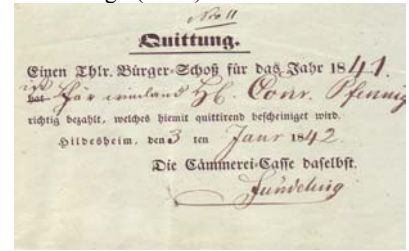 Nro 11
Quittung.
Einen Thlr. Bürger-Schoß für das Jahr 1841.
hat Conr. Pfennig
richtig bezahlt, welches hiemit quittirend bescheiniget wird.
Hildesheim, den 3 ten Janr 1842.
Die Cämmerei-Casse daselbst.